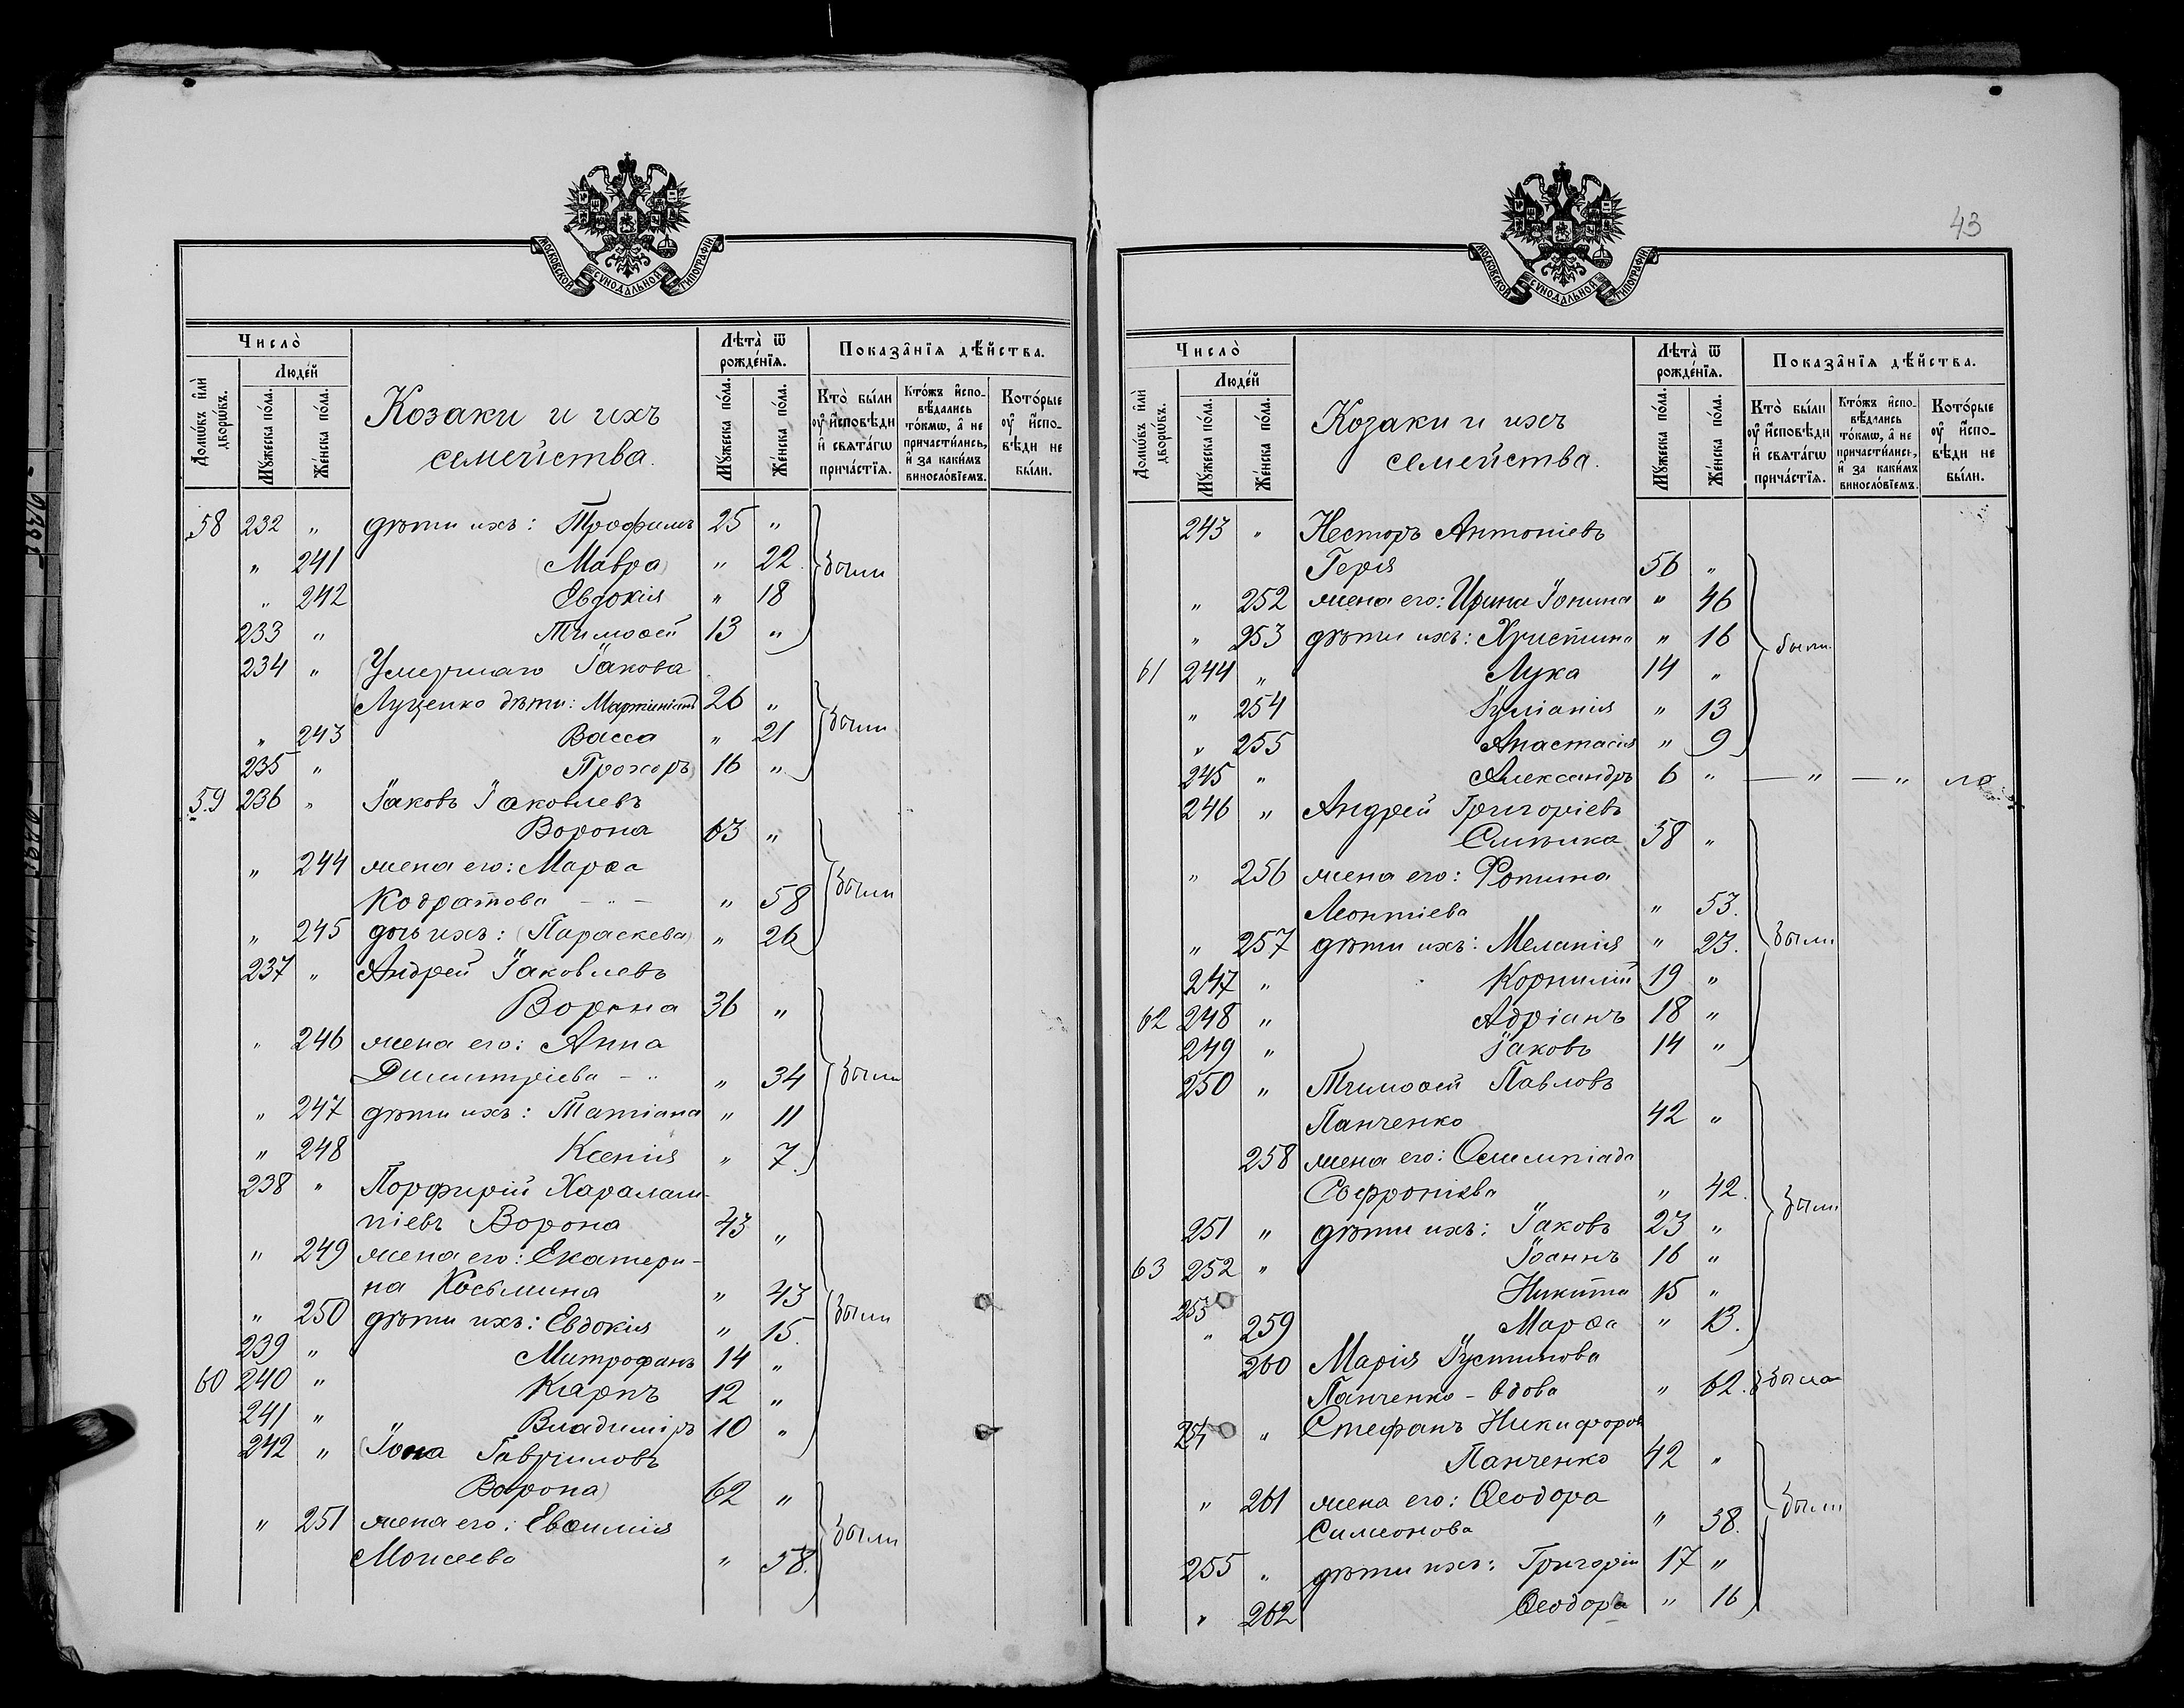 МОСКОВСКОЙ СѴНОДАЛЬНОЙ ТИПОГРАФІИ
Число̀
Людéй
Домѡ́въ и҆лѝ дворѡ́въ.
Мꙋ́жеска по́ла.
Же́нска по́ла.
Козаки и ихъ
семейства.
Лѣта̀ ѿ рожде́нїя.
Мꙋ́жеска по́ла.
Же́нска по́ла.
Показа̑нїя дѣ́йства.
Кто̀ бы́ли оу҆ и҆сповѣди и҆ свята́гѡ прича́стїя.
Кто́жъ и҆спо-вѣдались то́кмѡ, а҆ не причасти́лись, и҆ за каки́мъ винословїемъ.
Кото́рые оу҆ и҆спо-вѣди не бы́ли.
58 232 „ дѣти ихъ: Трофимъ 25 „
„ 241 (Мавра) „ 22. были
„ 242 Евдокія „ 18
233 „ Тимоѳей 13 „
234 „ (Умершаго Іакова
Луценко дѣти: 26 „
„ 243 Васса „ 21 были
235 „ Прохоръ) 16 „
59 236 „ Іаковъ Іаковлевъ
Ворона 63 „
„ 244 жена его: Марѳа
Кодратова - „ - „ 58 были
„ 245 дочь ихъ: (Параскева) „ 26
237 „ Андрей Іаковлевъ
Ворона 36 „
„ 246 жена его: Анна
Димитріева - „ „ 34 были
„ 247 дѣти ихъ: Татіана „ 11
„ 248 Ксенія „ 7.
238 „ Порфирій Харалам-
піевъ Ворона 43 „
„ 249 жена его: Екатери-
на Косьмина „ 43
„ 250 дѣти ихъ: Евдокія „ 15. были
239 „ Митрофанъ 14 „
60 240 „ Карпъ 12 „
241 „ „ Владиміръ 10 „
242 „ (Іона Гавриловъ
Ворона) 62 „
„ 251 жена его: Евѳимія были
Моисеева „ 58.
43
МОСКОВСКОЙ СѴНОДАЛЬНОЙ ТИПОГРАФІИ
Число̀
Людéй
Домѡ́въ и҆лѝ дворѡ́въ.
Мꙋ́жеска по́ла.
Же́нска по́ла.
Козаки и ихъ
семейства.
Лѣта̀ ѿ рожде́нїя.
Мꙋ́жеска по́ла.
Же́нска по́ла.
Показа̑нїя дѣ́йства.
Кто̀ бы́ли оу҆ и҆сповѣди и҆ свята́гѡ прича́стїя.
Кто́жъ и҆спо-вѣдались то́кмѡ, а҆ не причасти́лись, и҆ за каки́мъ винословїемъ.
Кото́рые оу҆ и҆спо-вѣди не бы́ли.
243 „ Несторъ Антоніевъ
Герія 56 „
„ 252 жена его: Ирина Іонина „ 46
„ 253 дѣти ихъ: Христина „ 16 были
61 244 „ Лука 14 „
„ 254 Іуліанія „ 13
„ 255 Анастасія „ 9
245 „ Александръ 6 „ — „ — „
246 „ Андрей Григоріевъ
58 „
„ 256 жена его: Фотина
Леонтіева „ 53.
„ 257 дѣти ихъ: Меланія „ 23. были
247 „ Корнилій 19 „
62 248 „ Адріанъ 18 „
249 „ Іаковъ 14 „
250 „ Тимоѳей Павловъ
Панченко 42 „
258 жена его: Олимпіада
Софроніева „ 42.
251 „ дѣти ихъ: Іаковъ 23 „ были
63 252 „ Іоаннъ 16 „
253 Никита 15 „
„ 259 Марѳа „ 13.
260 Марія Іустинова
Панченко - вдова „ 62. была
254 „ Стефанъ Никифоровъ
Панченко 42 „
„ 261 жена его: Ѳеодора
Симеонова „ 38. были
255 „ дѣти ихъ: Григорій 17 „
„ 262 Ѳеодора „ 16